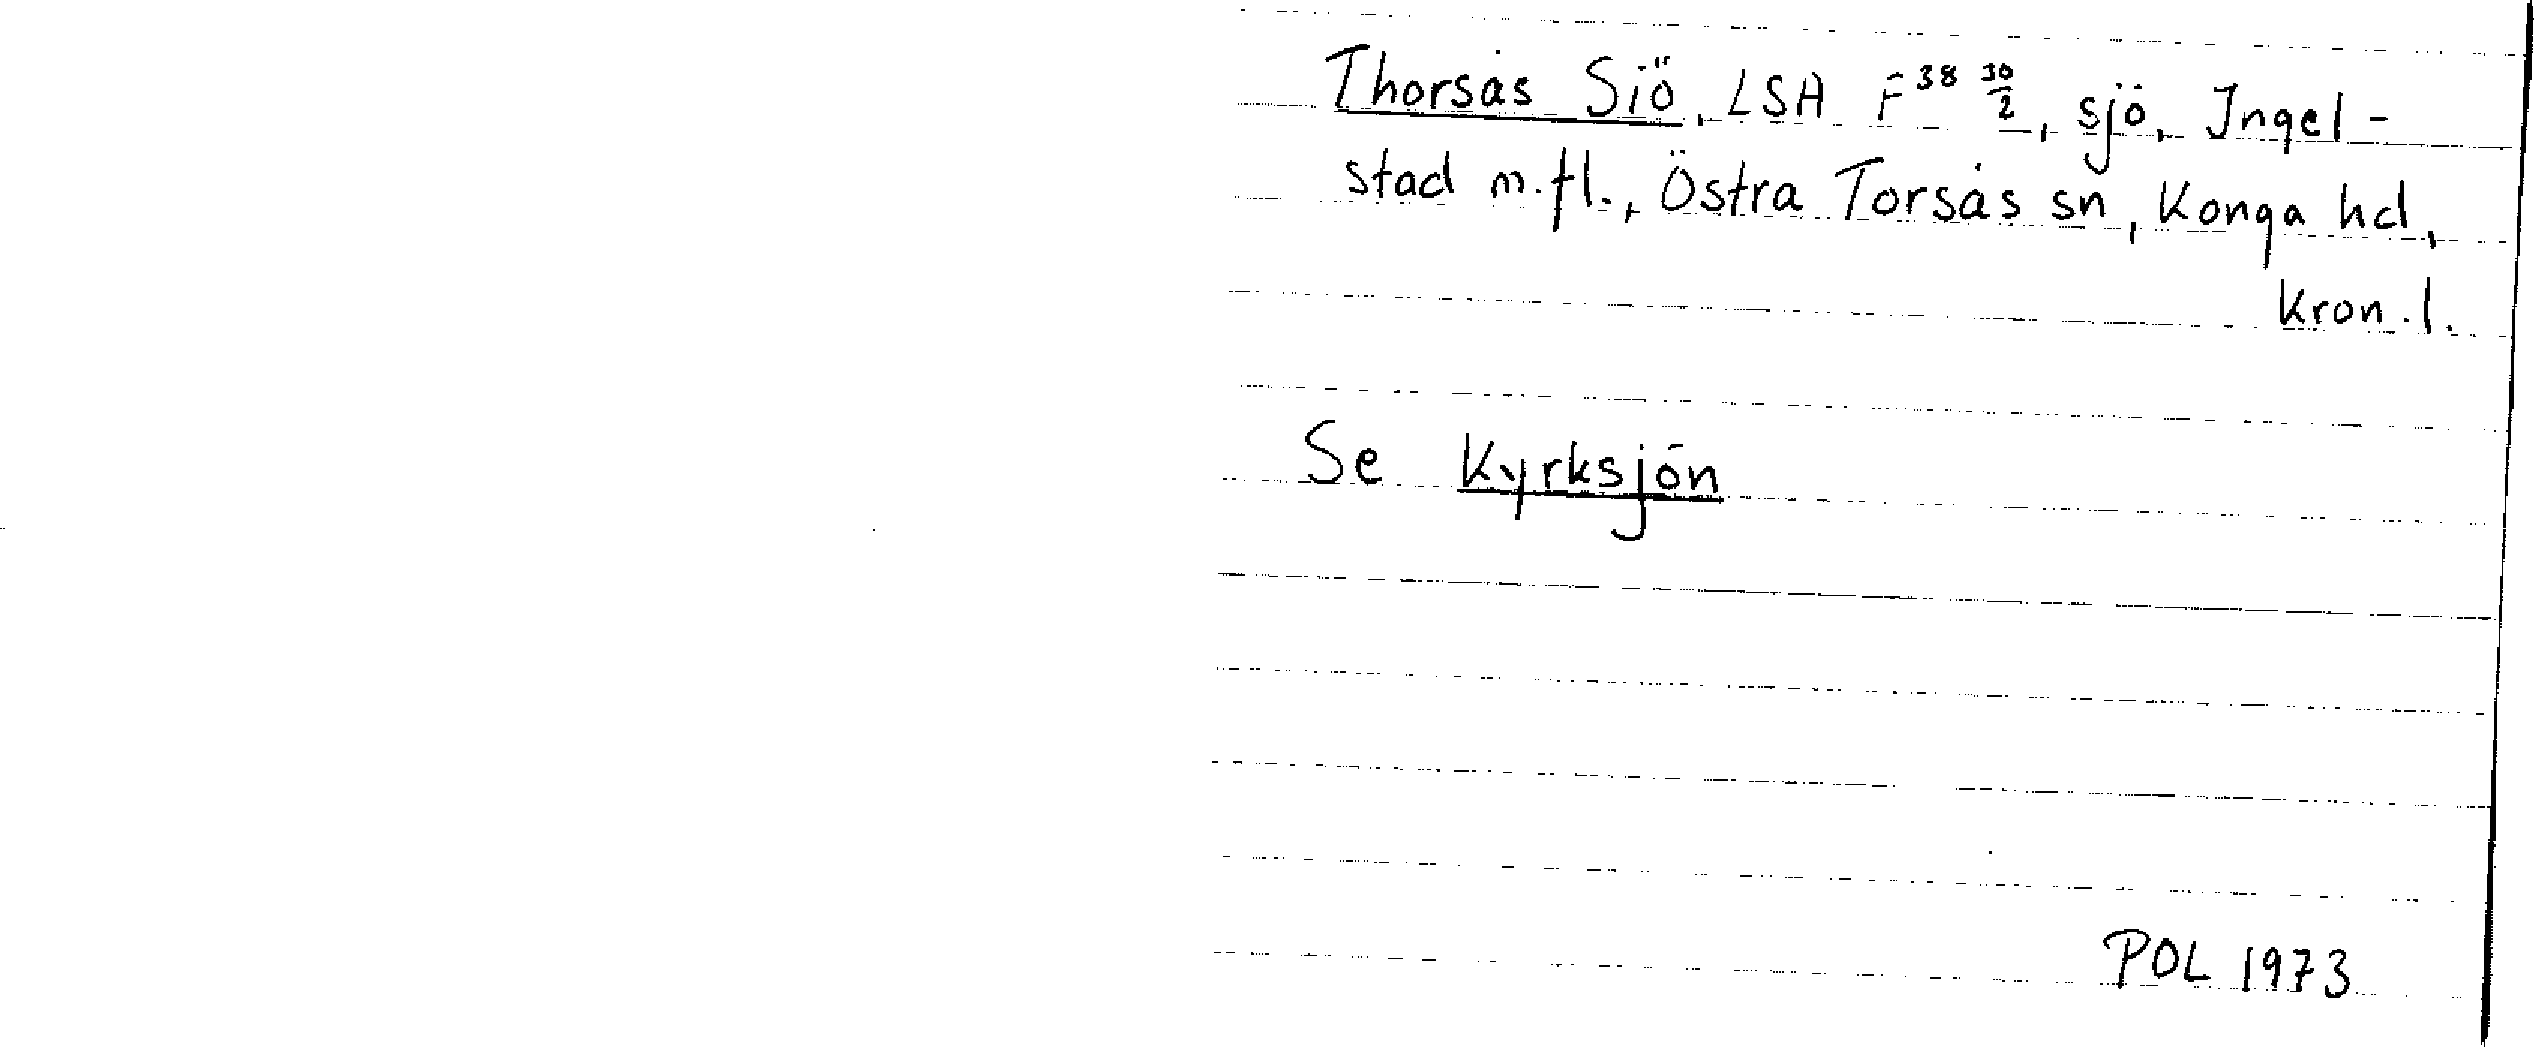 Thorsås Siö, LSA F³⁸ 30/2, sjö, Ingel-
stad m.fl., Östra Torsås sn, Konga hd,
Kron.l.
Se Kyrksjön
POL 1973